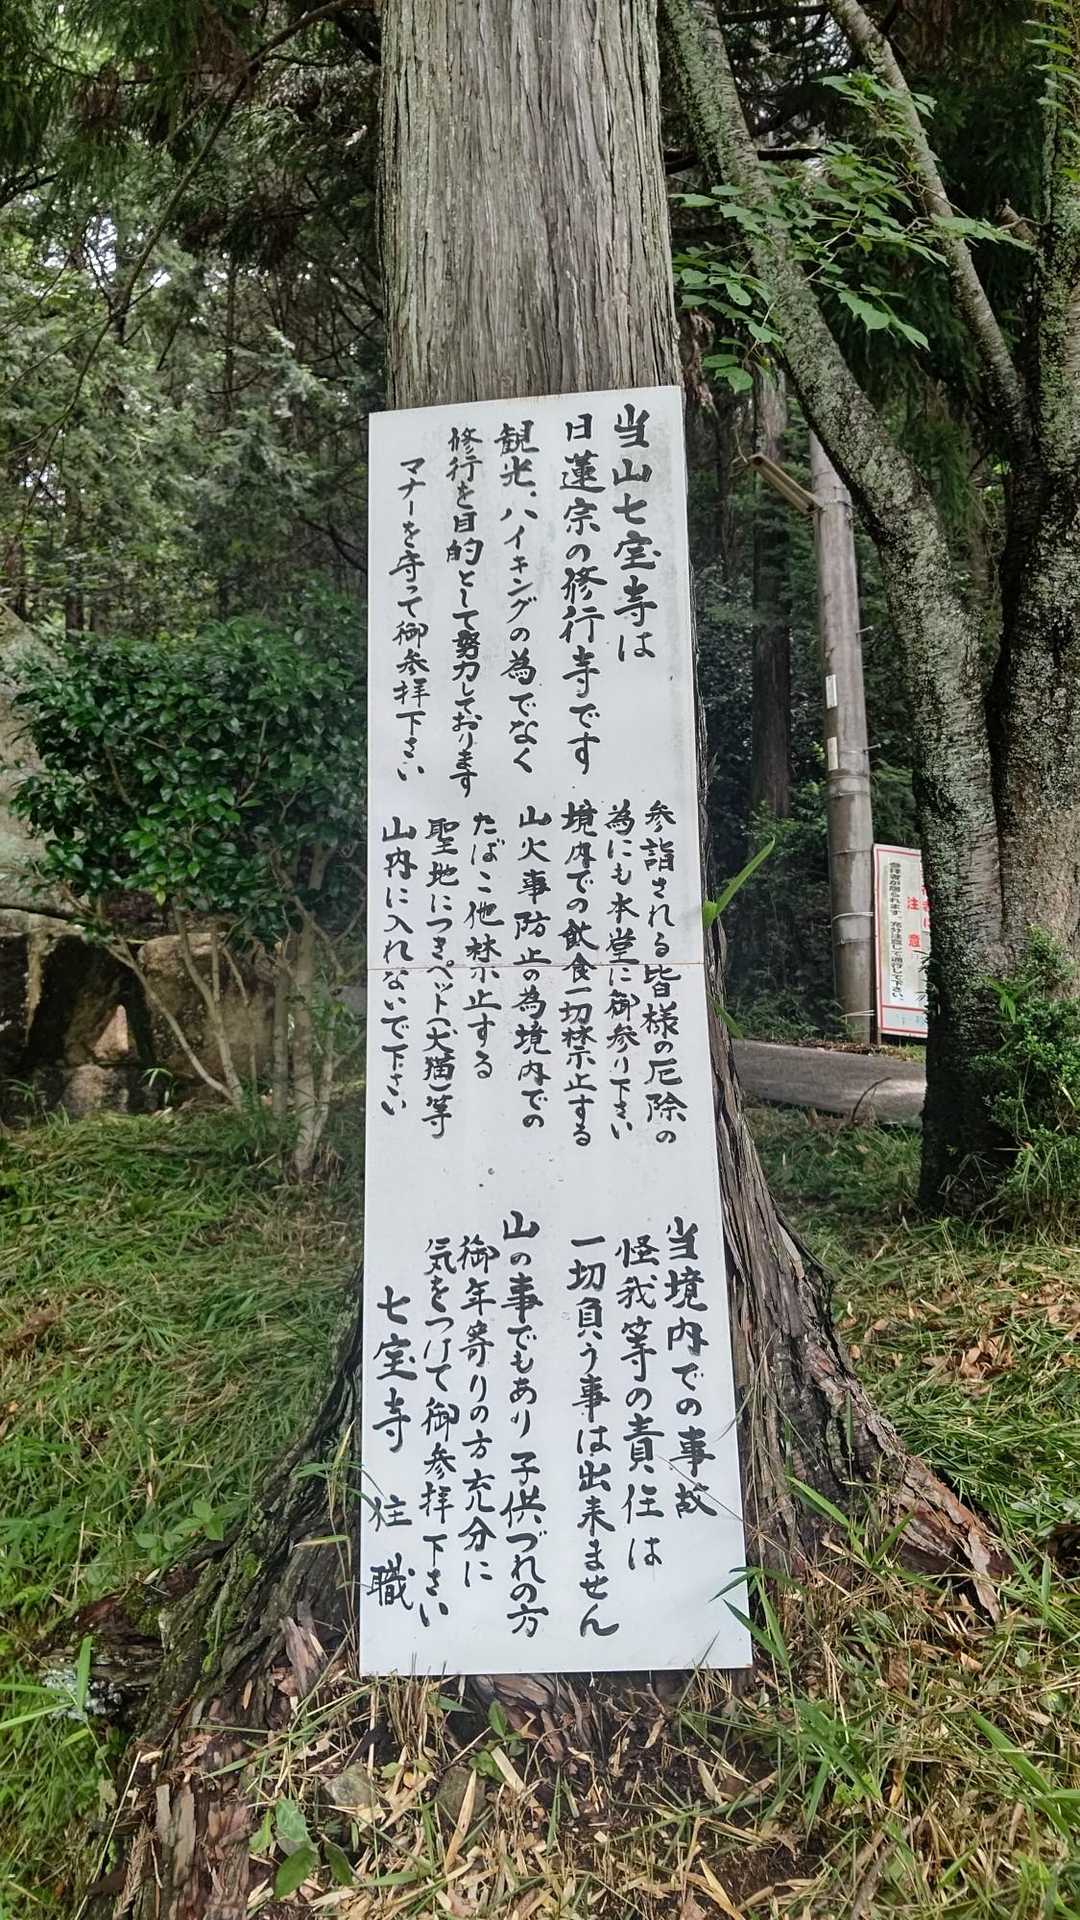 当山七宝寺は
日蓮宗の修行寺です
観光、ハイキングの為でなく
修行を目的として努力しております
マナーを守って御参拝下さい
参詣される皆様の厄除の
為にも本堂に御参り下さい
境内での飲食一切禁止する
山火事防止の為境内での
たばこ他禁止する
聖地につきペット(犬猫)等
山内に入れないで下さい
当境内での事故
怪我等の責任は
一切負う事は出来ません
山の事でもあり子供づれの方
御年寄りの方充分に
気をつけて御参拝下さい
七宝寺 住職
注意
参拝者が居られます。充分注意して通行して下さい。